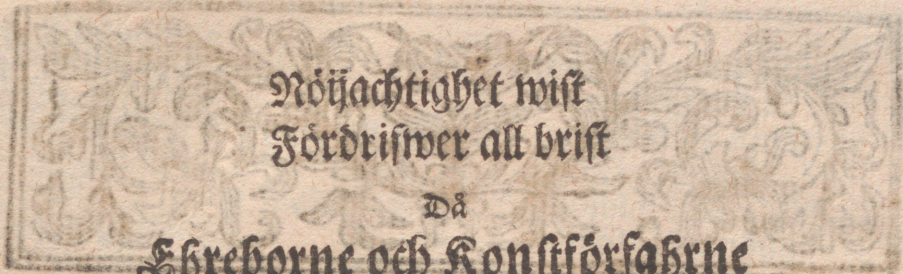 Nöijachtighet wist
Fördrifwer all brist
Då
Ehreborne och Konstförfahrne